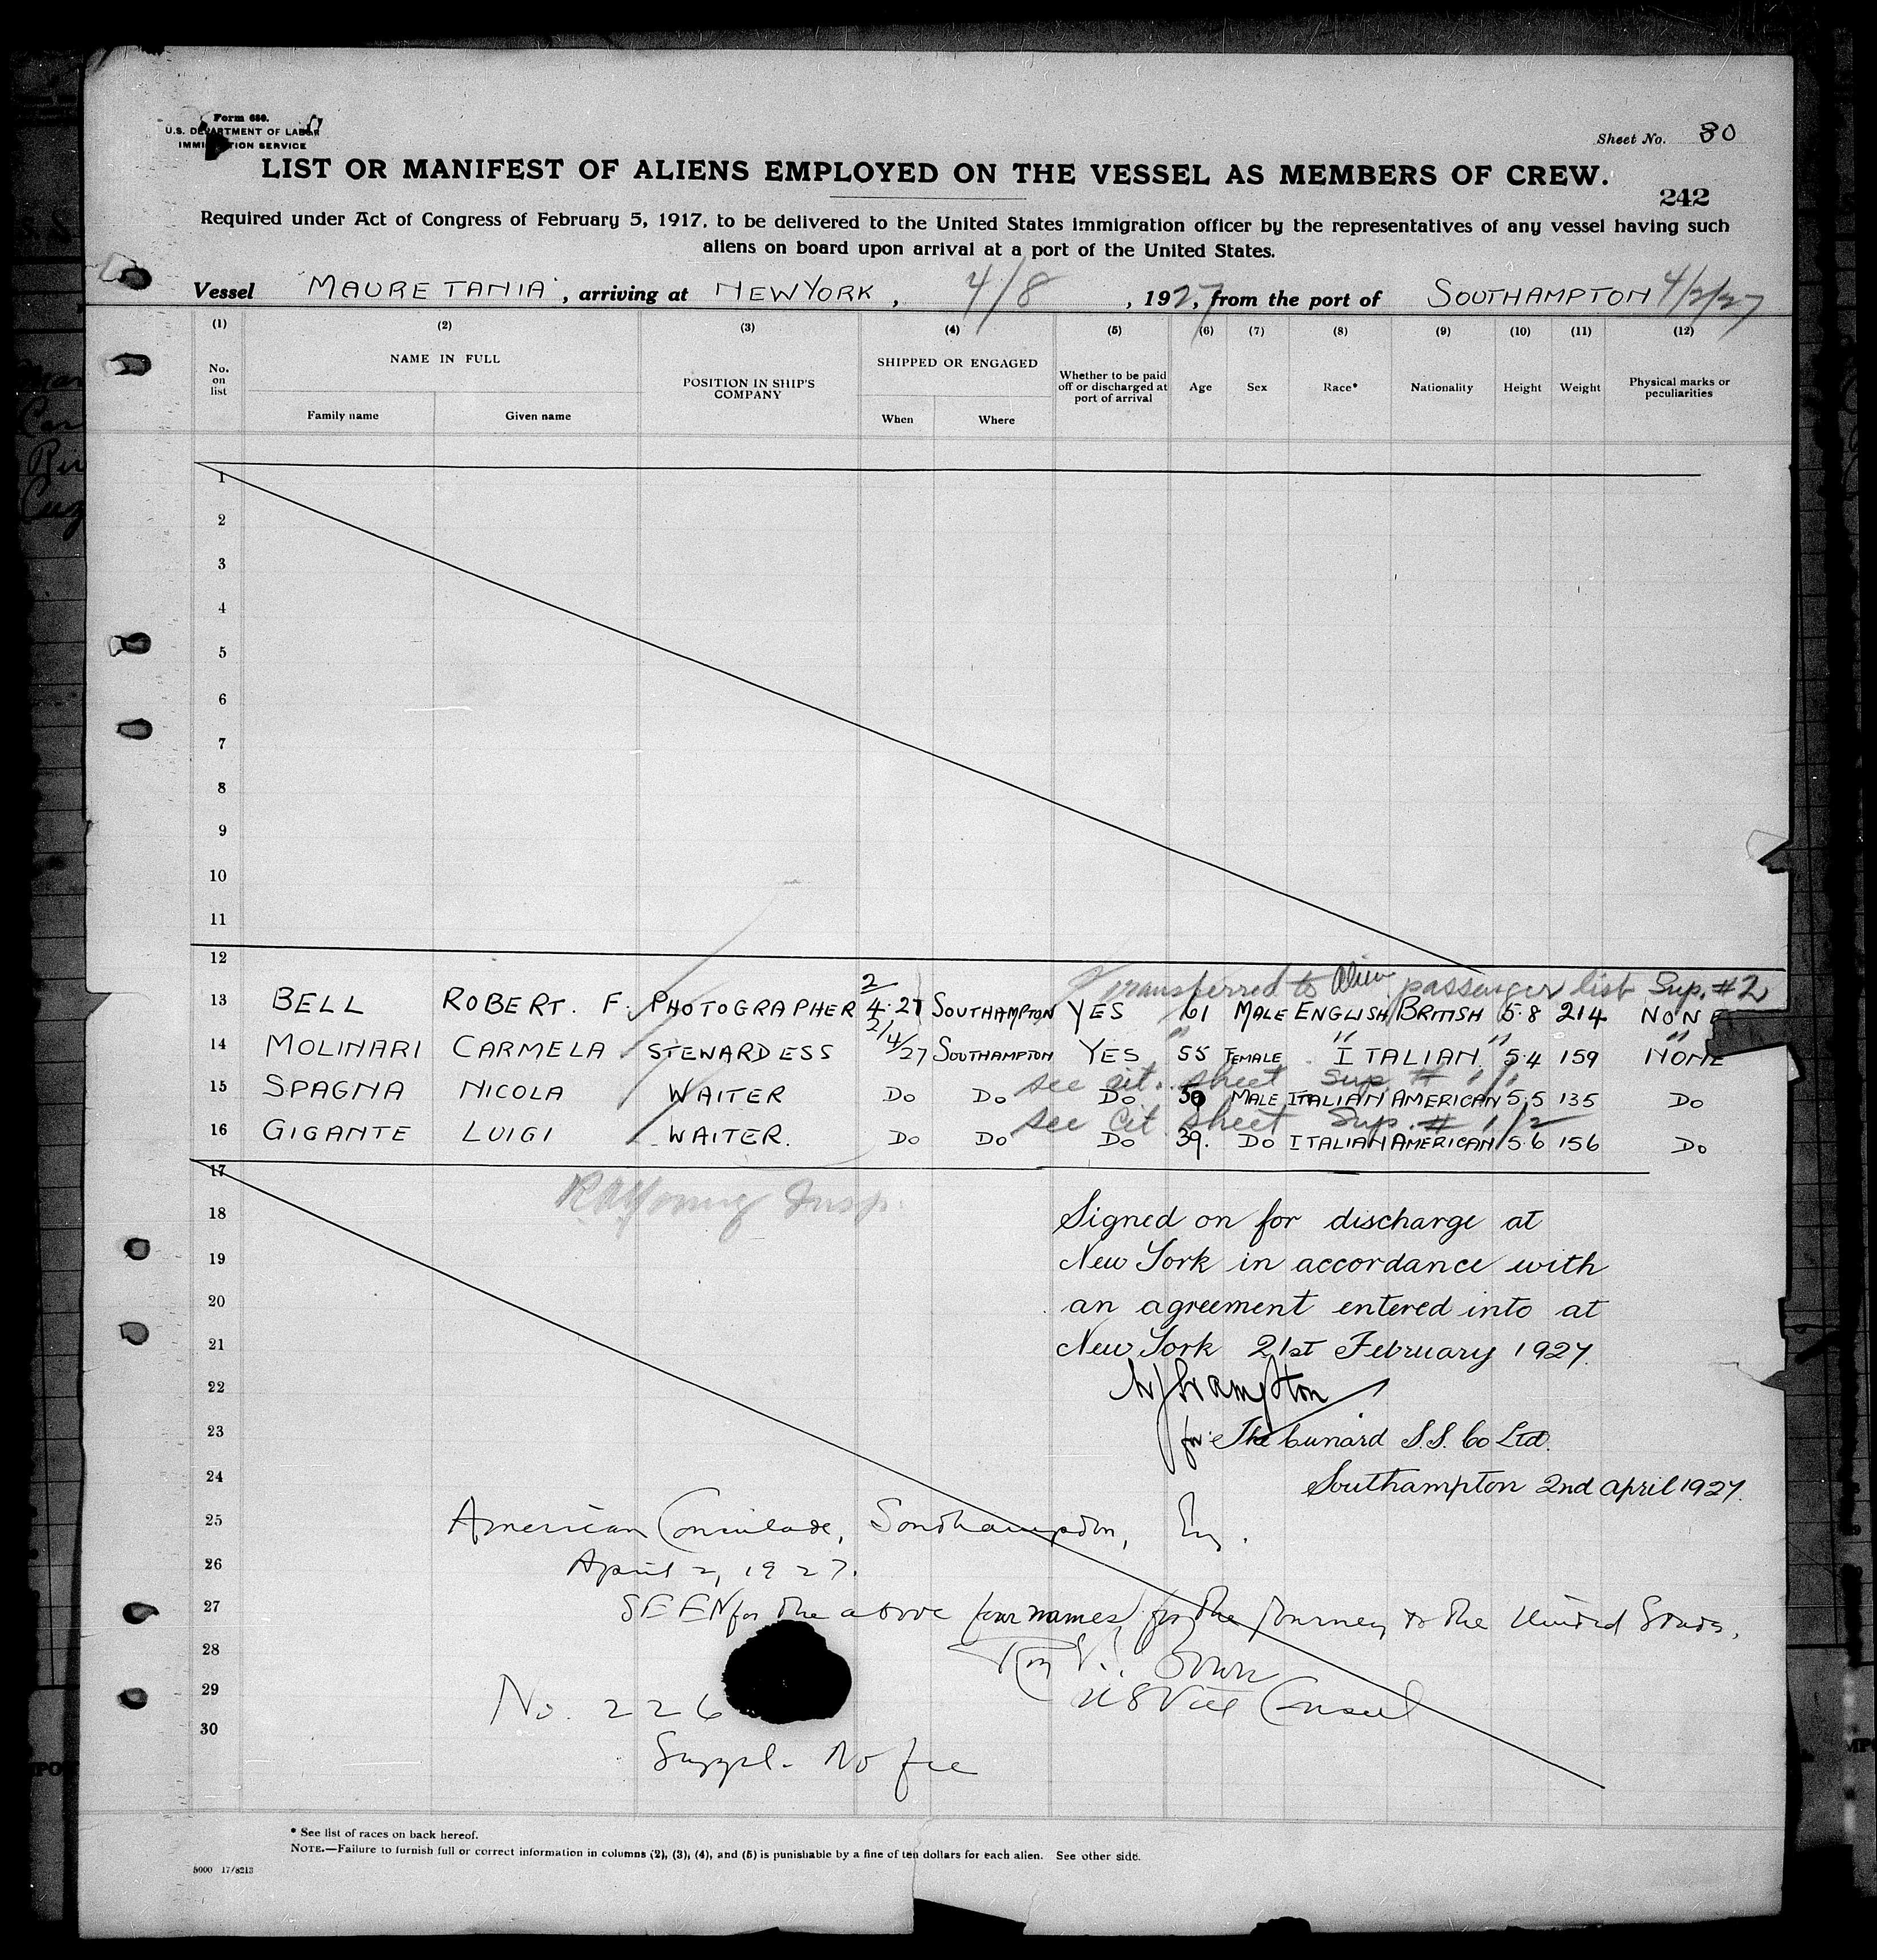 Form 680.
U.S. DEPARTMENT OF LABOR
IMMIGRATION SERVICE
Sheet No. 30
LIST OR MANIFEST OF ALIENS EMPLOYED ON THE VESSEL AS MEMBERS OF CREW.
242
Required under Act of Congress of February 5, 1917, to be delivered to the United States immigration officer by the representatives of any vessel having such
aliens on board upon arrival at a port of the United States.
Vessel "MAURETANIA", arriving at NEW YORK, 4/8, 1927, from the port of SOUTHAMPTON 4/2/27
(1) (2) (3) (4) (5) (6) (7) (8) (9) (10) (11) (12)
No. on list NAME IN FULL Family name Given name POSITION IN SHIP'S COMPANY SHIPPED OR ENGAGED When Where Whether to be paid off or discharged at port of arrival Age Sex Race* Nationality Height Weight Physical marks or peculiarities
1
2
3
4
5
6
7
8
9
10
11
12
Transferred to Alien passenger list Sup. #2
13 BELL ROBERT. F. PHOTOGRAPHER 2/4.27 SOUTHAMPTON YES 61 MALE ENGLISH BRITISH 5.8 214 NONE
14 MOLINARI CARMELA STEWARDESS 2/4/27 SOUTHAMPTON YES 55 FEMALE ITALIAN 5.4 159 NONE
see cit. sheet Sup. # 1/1
15 SPAGNA NICOLA WAITER DO DO DO MALE ITALIAN AMERICAN 5.5 135 DO
see cit sheet Sup. # 1/2
16 GIGANTE LUIGI WAITER. DO DO DO 39. DO ITALIAN AMERICAN 5.6 156 DO
17
18
19
20
21
22
23
24
25
26
27
28
29
30
Insp.
Signed on for discharge at
New York in accordance with
an agreement entered into at
New York 21st February 1927.
for The Cunard S.S. Co Ltd.
Southampton 2nd April 1927.
American Consulate, Southampton, Eng.
April 2, 1927.
SEEN for the above four names for the journey to the United States.
US Vice Consul
No. 226
Suppl. No fee
* See list of races on back hereof.
NOTE.—Failure to furnish full or correct information in columns (2), (3), (4), and (5) is punishable by a fine of ten dollars for each alien. See other side.
5000 17/8213